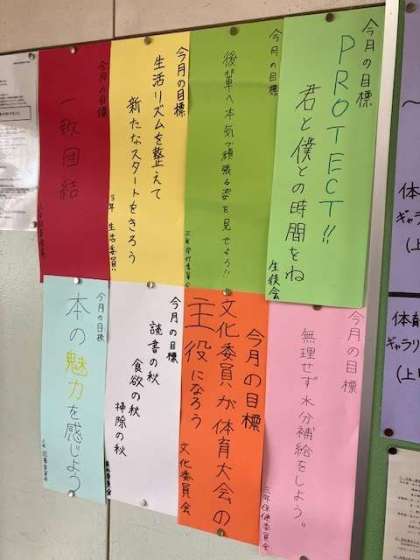 今月の目標
PROTECT!!
君と僕との時間をね
生徒会
今月の目標
後輩へ本気で頑張る姿を見せよう!!
今月の目標
生活リズムを整えて
新たなスタートをきろう
生活委員
今月の目標
一致団結
今月の目標
無理せず水分補給をしよう。
三年保健委員会
今月の目標
文化委員が体育大会の
主役になろう
文化委員会
今月の目標
読書の秋
食欲の秋
掃除の秋
今月の目標
本の魅力を感じよう
体
ギャラリ
(上
体育
ギャラリ
(上